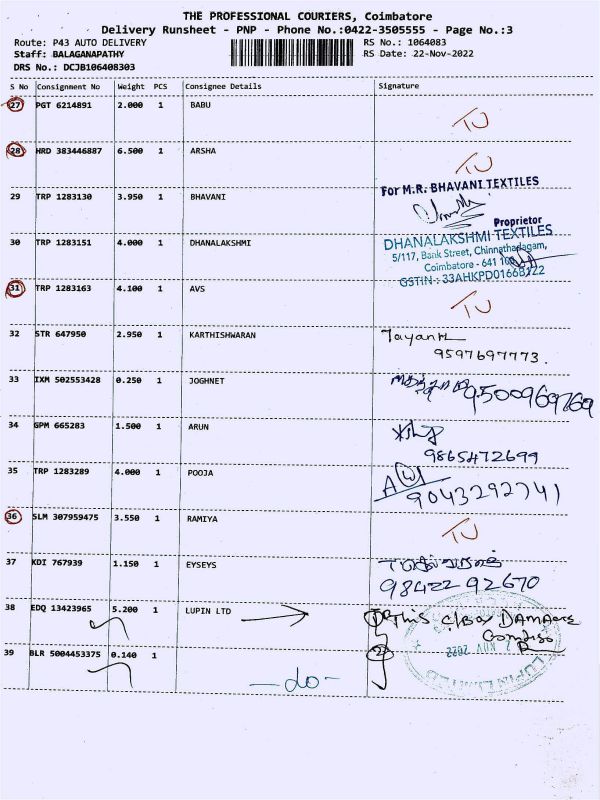 THE PROFESSIONAL COURIERS, Coimbatore
Delivery Runsheet - PNP - Phone No.:0422-3505555 - Page No.:3
Route: P43 AUTO DELIVERY RS No.: 1064083
Staff: BALAGANAPATHY RS Date: 22-Nov-2022
DRS No.: DCJB106408303
S No Consignment No Weight PCS Consignee Details Signature
27 PGT 6214891 2.000 1 BABU TU
28 HRD 383446887 6.500 1 ARSHA TU
For M.R. BHAVANI TEXTILES
29 TRP 1283130 3.950 1 BHAVANI
Proprietor
30 TRP 1283151 4.000 1 DHANALAKSHMI DHANALAKSHMI TEXTILES
5/117, Bank Street, Chinnathadagam,
Coimbatore - 641 108
GSTIN - 33AHKPD0166B1Z2
31 TRP 1283163 4.100 1 AVS TU
32 STR 647950 2.950 1 KARTHISHWARAN Jayanth
9597697773.
33 IXM 502553428 0.250 1 JOGHNET 9500969769
34 GPM 665283 1.500 1 ARUN
9865472699
35 TRP 1283289 4.000 1 POOJA
9043292741
36 SLM 307959475 3.550 1 RAMIYA TU
37 KDI 767939 1.150 1 EYSEYS
98422 92670
38 EDQ 13423965 5.200 1 LUPIN LTD 1 This C/Box DAMAGE
39 BLR 5004453375 0.140 1 2
-do-
LUPIN LIMITED